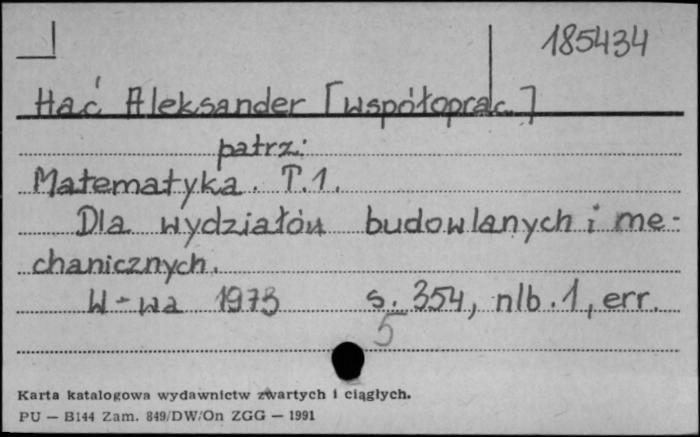 185434
Hać Aleksander [współoprac.]
patrz:
Matematyka. T.1.
Dla wydziałów budowlanych i me-
chanicznych.
W-wa 1973 s. 354, nlb. 1, err.
5
Karta katalogowa wydawnictw zwartych i ciągłych.
PU — B144 Zam. 849/DW/On ZGG — 1991